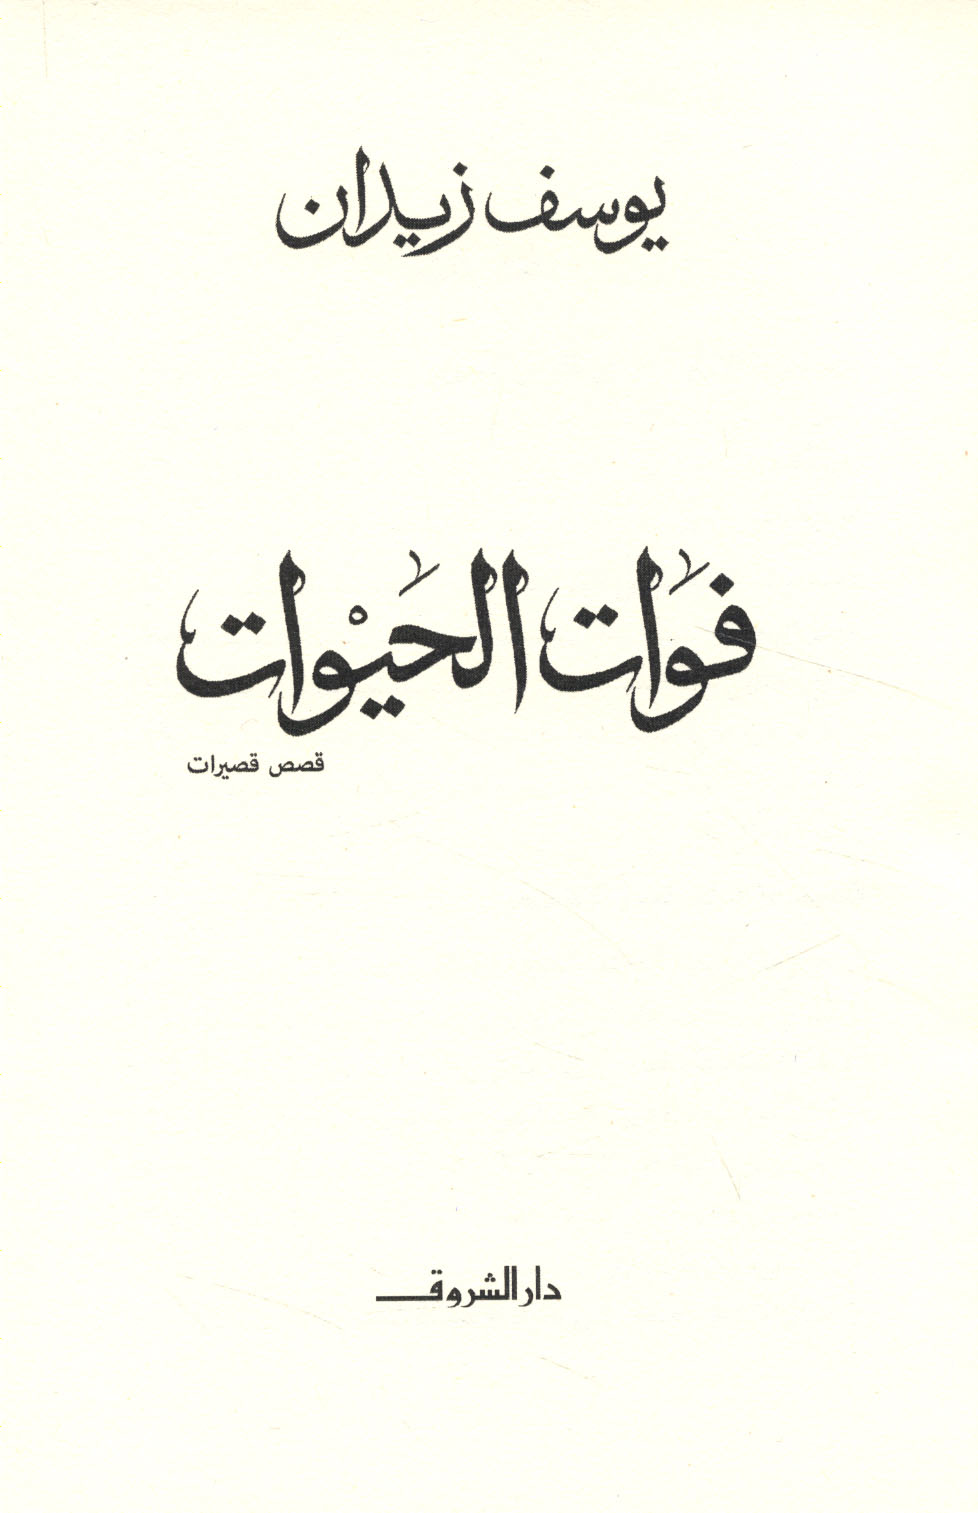 يوسف زيدان
فَوَات الحَيْوات
قصص قصيرات
دار الشروق